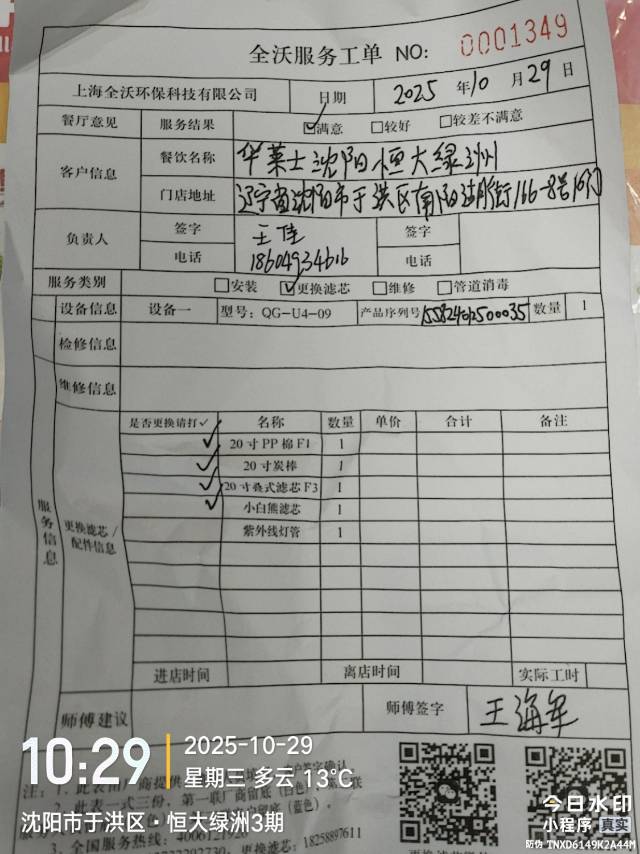 全沃服务工单 NO: 0001349
上海全沃环保科技有限公司 日期 2025 年 10 月 29 日
餐厅意见 服务结果 ☑满意 □较好 □较差不满意
客户信息 餐饮名称 华莱士沈阳恒大绿洲
门店地址 辽宁省沈阳市于洪区南阳湖街166-8号
负责人 签字 王佳 签字
电话 18604934616 电话
服务类别 □安装 ☑更换滤芯 □维修 □管道消毒
设备信息 设备一 型号: QG-U4-09 产品序列号 数量 1
检修信息
维修信息
服务信息
更换滤芯/配件信息
是否更换请打✓ 名称 数量 单价 合计 备注
✓ 20寸PP棉F1 1
✓ 20寸炭棒 1
✓ 20寸叠式滤芯F3 1
✓ 小白熊滤芯 1
紫外线灯管 1
进店时间 离店时间 实际工时
师傅建议 师傅签字 王海军
10:29 2025-10-29
星期三 多云 13°C
沈阳市于洪区·恒大绿洲3期
今日水印
小程序 真实
防伪 TNXD6149K2A44M